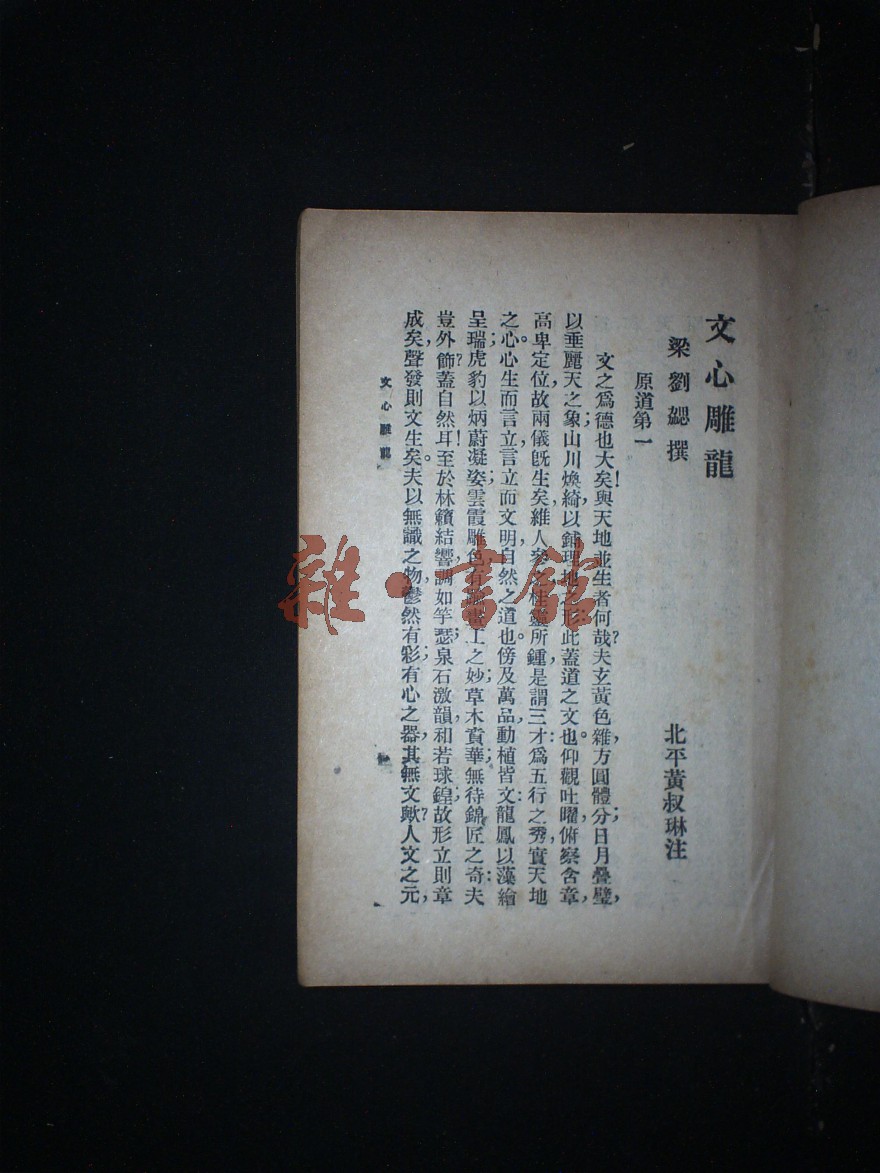 文心雕龍
梁劉勰撰
北平黃叔琳注
原道第一
文之爲德也大矣!與天地並生者何哉?夫玄黃色雜,方圓體分;日月疊璧,
以垂麗天之象;山川煥綺,以鋪理地之形:此蓋道之文也。仰觀吐曜,俯察含章,
高卑定位,故兩儀旣生矣。維人參之,性靈所鍾,是謂三才;爲五行之秀,實天地
之心。心生而言立,言立而文明,自然之道也。傍及萬品,動植皆文:龍鳳以藻繪
呈瑞,虎豹以炳蔚凝姿;雲霞雕色,有踰畫工之妙;草木賁華,無待錦匠之奇:夫
豈外飾?蓋自然耳!至於林籟結響,調如竽瑟;泉石激韻,和若球鍠;故形立則章
成矣,聲發則文生矣。夫以無識之物,鬱然有彩;有心之器,其無文歟?人文之元,
文心雕龍
雜·書館